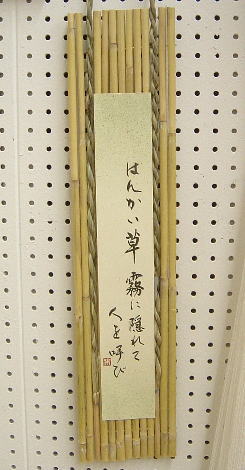 はんかい草霧に隠れて
人を呼び